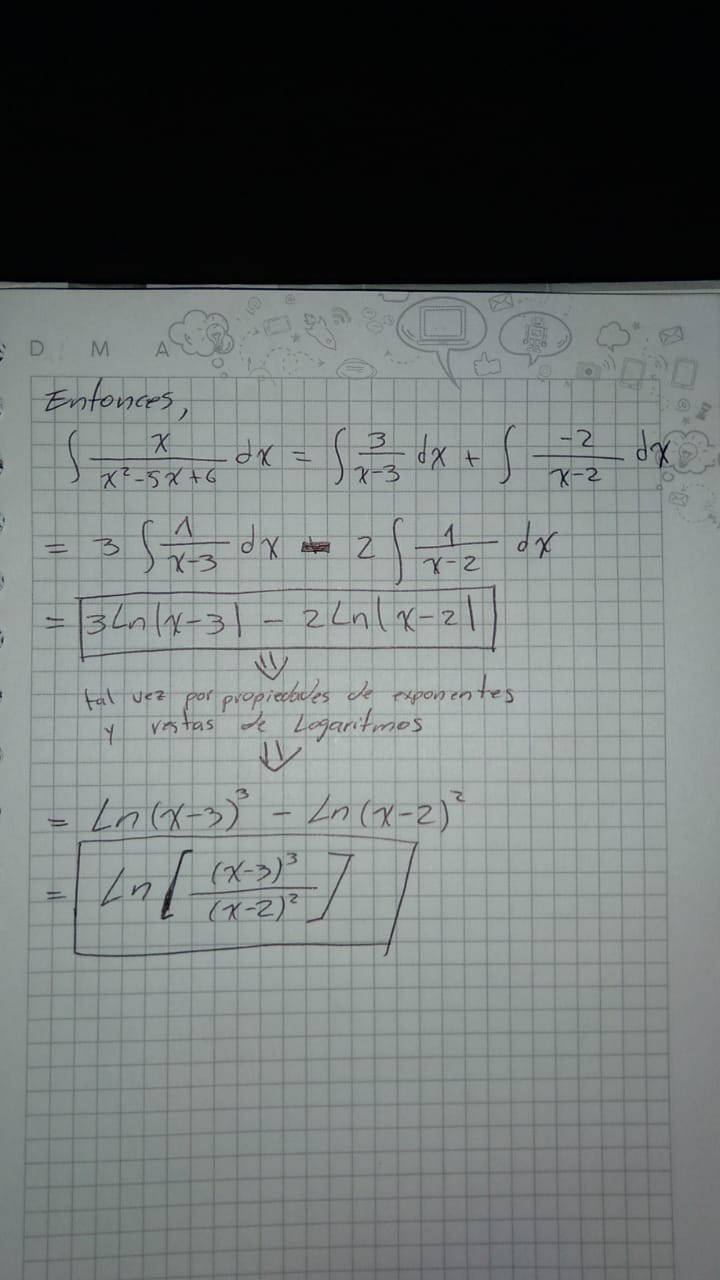 D M A
Entonces,
∫ x/(x²-5x+6) dx = ∫ 3/(x-3) dx + ∫ -2/(x-2) dx
= 3 ∫ 1/(x-3) dx - 2 ∫ 1/(x-2) dx
= 3Ln|x-3| - 2Ln|x-2|
⇓
tal vez por propiedades de exponentes
y restas de Logaritmos
⇓
= Ln(x-3)³ - Ln(x-2)²
= Ln[(x-3)³/(x-2)²]